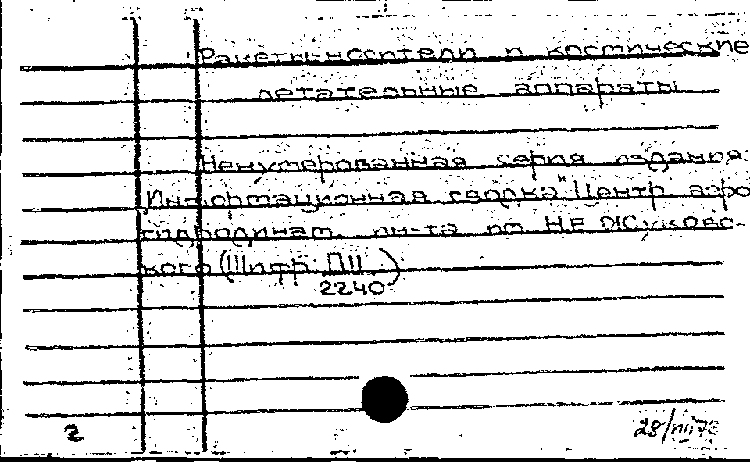 Ракеты-носители и космические
летательные аппараты
Ненумерованная серия издания:
Информационная сводка" Центр. аэро
гидродинам. ин-та им НЕ Жуковс-
кого (Шифр: ПШ )
2240
2
28/VIII 73